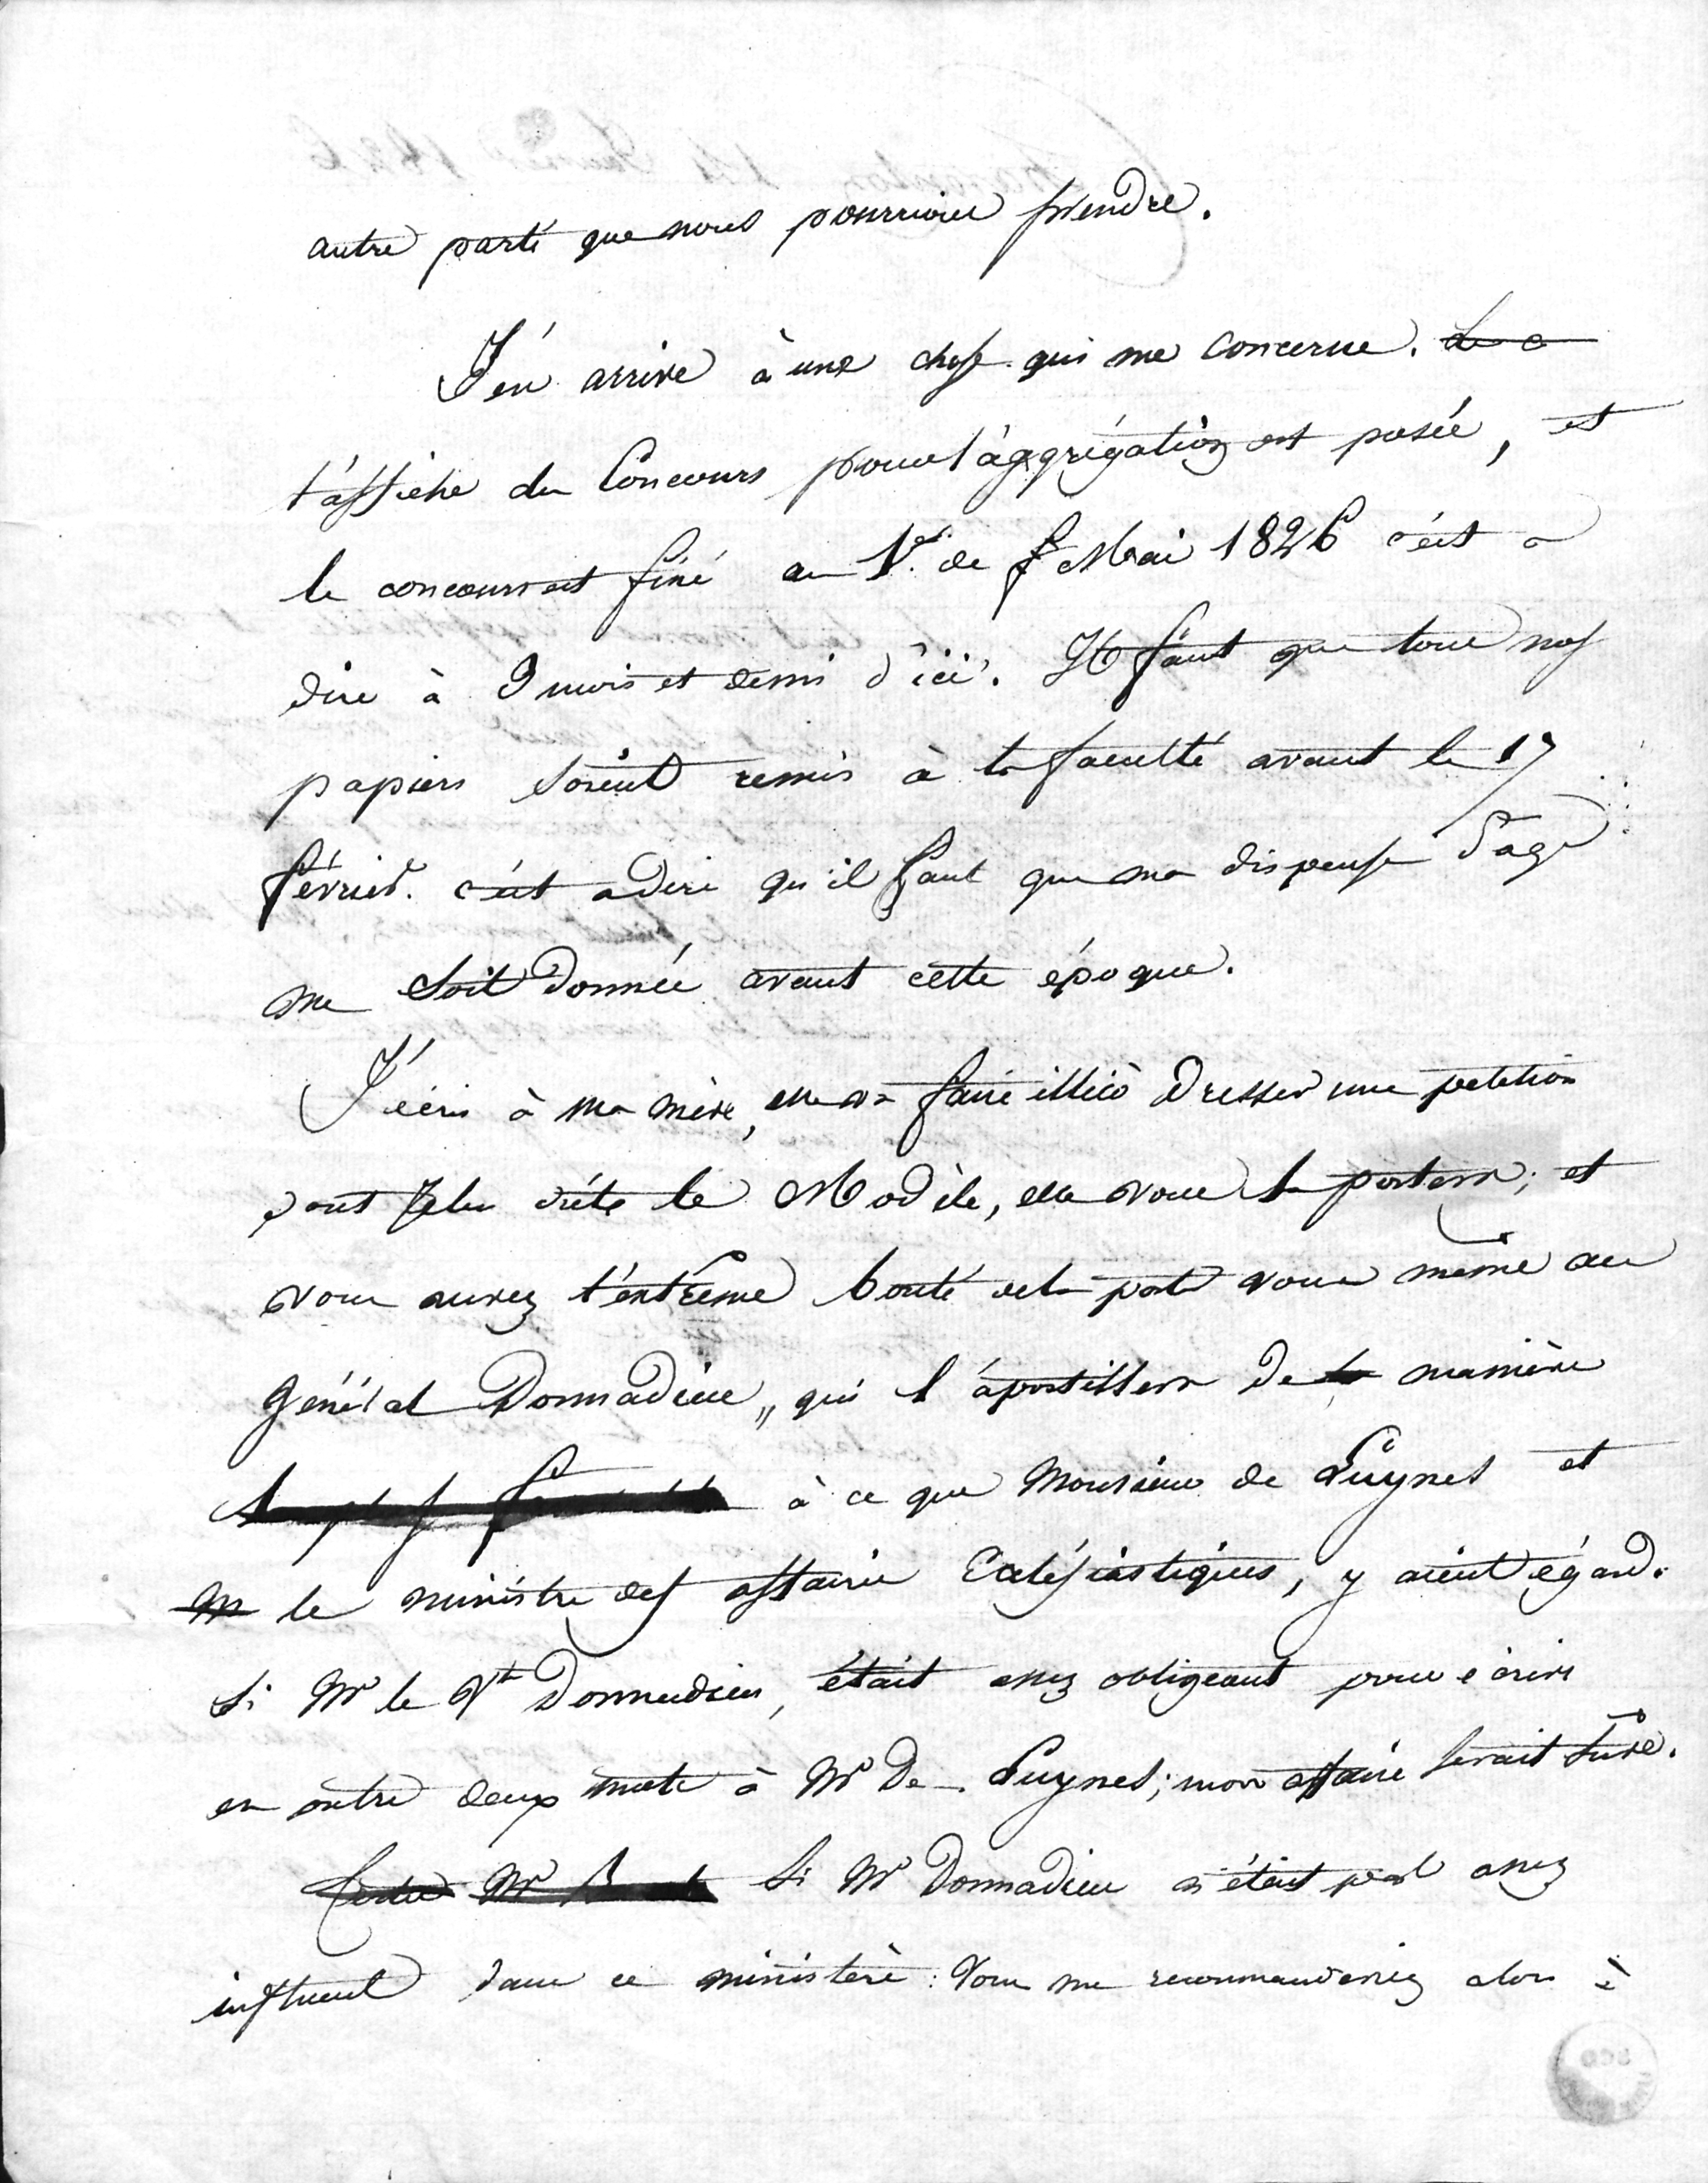 autre parti que nous pourrions prendre.
J'en arrive à une chose qui me concerne.
l'affiche du Concours pour l'aggrégation est posée, et
le concours est fixé au 1er. de Mai 1826 c'est a
dire à 3 mois et demi d'ici. Il faut que tous nos
papiers soient remis à la faculté avant le 17
février. c'est a dire qu'il faut que ma dispense d'age
me soit donnée avant cette époque.
J'écris à ma mère, elle va faire illico dresser une petition
dont je lui le Modèle, elle vous la portera; et
vous aurez l'extrême bonté de la porter vous même au
Général Donnadieu, qui l'apostillera de manière
à ce que Monsieur de Luynes et
le ministre des affaires Ecclésiastiques, y aient égard.
Si Mr le Vte Donnadieu, était assez obligeant pour écrire
en outre deux mots à Mr De Luynes; mon affaire serait sûre.
Si Mr Donnadieu n'était pas assez
influent dans ce ministère: Vous me recommanderiez alors à